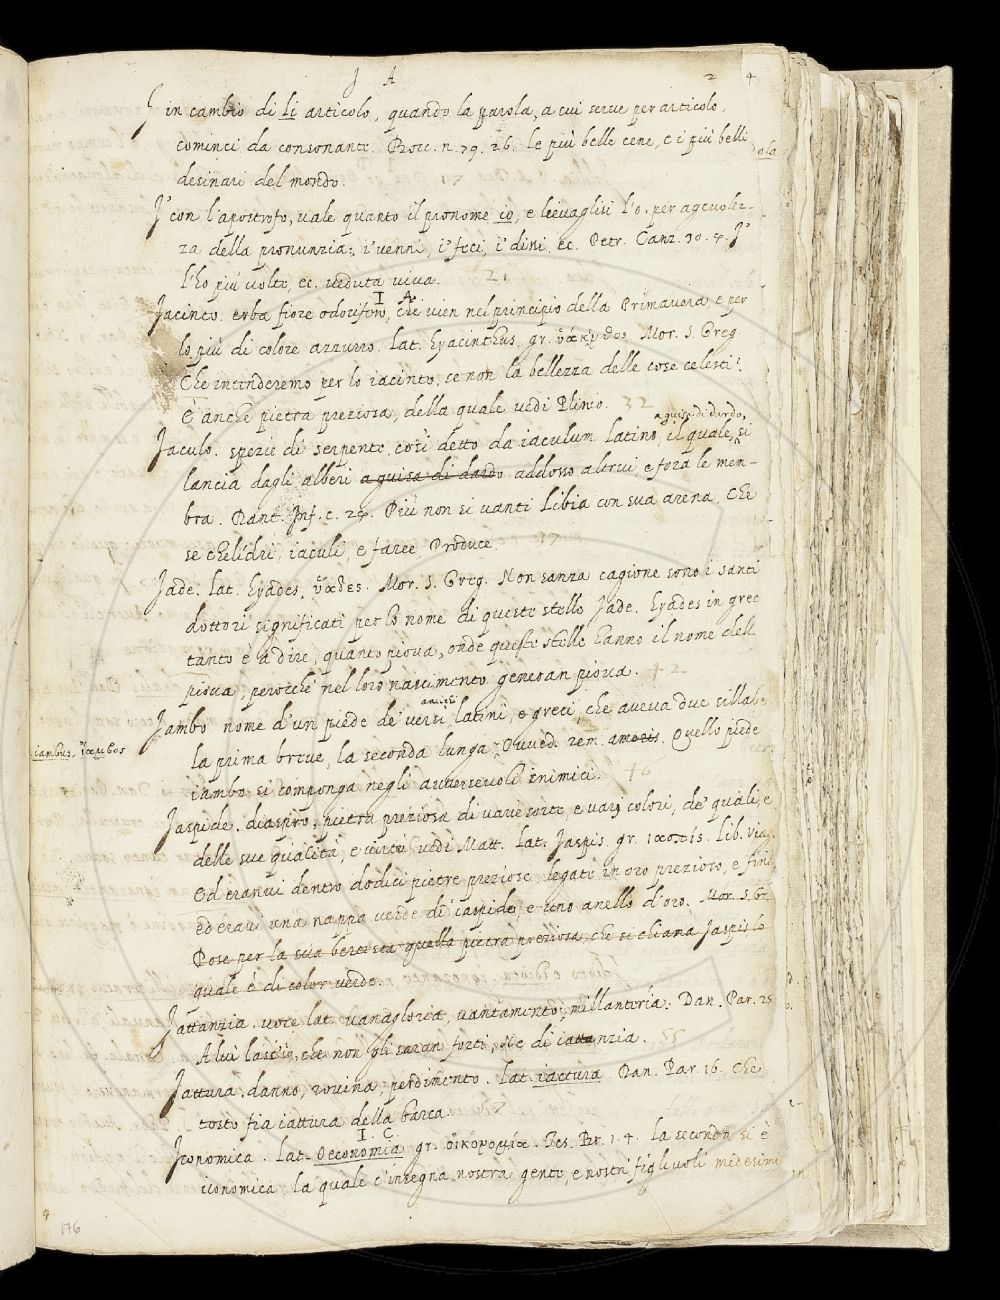 J A 2 4
J in cambio di li articolo, quando la parola, a cui serve per articolo,
cominci da consonante. Bocc. n. 79. 26. Le più belle cene, e i più belli
desinari del mondo. 17
J' con l'apostrofo, vale quanto il pronome io, e lievaglisi l'o. per agevolez-
za della pronunzia: i' venni, i' feci, i' dissi. ec. Petr. Canz. 30. 4. J'
l'ho più volte, ec. veduta viva. 21
I A
Jacinto. erba fiore odorifero, che vien nel principio della Primavera e per
lo più di colore azzurro. Lat. hyacinthus, gr. ὑάκινθος Mor. S. Greg.
Che intenderemo per lo iacinto, se non la bellezza delle cose celesti?
E anche pietra preziosa, della quale vedi Plinio. 32
a guisa di dardo,
Jaculo. spezie di serpente, così detto da iaculum latino, il quale, si
lancia dagli alberi a guisa di dardo addosso altrui e fora le mem-
bra. Dant. Inf. c. 24. Più non si vanti Libia con sua arena, Che
se chelidri, iaculi, e faree, Produce. 37
Jade. Lat. hyades, ὕαδες. Mor. S. Greg. Non sanza cagione sono i santi
dottori significati per lo nome di queste stelle Jade. hyades in grec
tanto è a dire, quanto piova, onde queste stelle hanno il nome dell
piova, perocchè nel loro nascimento generan piova. 42
antichi
Jambo nome d'un piede de' versi latini, e greci, che aveva due sillab:
iambus, ἴαμβος
la prima breve, la seconda lunga. Ovved. rem. amoris. Quello piede
iambo si componga negli avversevoli inimici. 46
Jaspide. diaspro, pietra preziosa di varie sorte, e varj colori, de' quali, e
delle sue qualità, e virtù vedi Matt. Lat. Jaspis. gr. ἴασπις. Lib. Viag.
Ed eranvi dentro dodici pietre preziose, legate in oro prezioso, e fine,
ed eravi una nappa verde di iaspide, e uno anello d'oro. Mor. S. Gr.
Pose per la sua quella pietra preziosa, che si chiama Jaspis, lo
quale è di color verde.
Jattanzia. voce lat. vanagloria, vantamento, millanteria. Dan. Par. 25
A lui lascio, che non gli saran forti, Nè di iattanzia. 55
Jattura. danno, rovina, perdimento. Lat. iactura. Dan. Par. 16. Che
tosto fia iattura della barca.
I. C
Jconomica. Lat. Oeconomia gr. οἰκονομία. Tes. Br. 1. 4. La seconda si è
iconomica, la quale c'insegna nostra gente, e nostri figliuoli medesimi
176